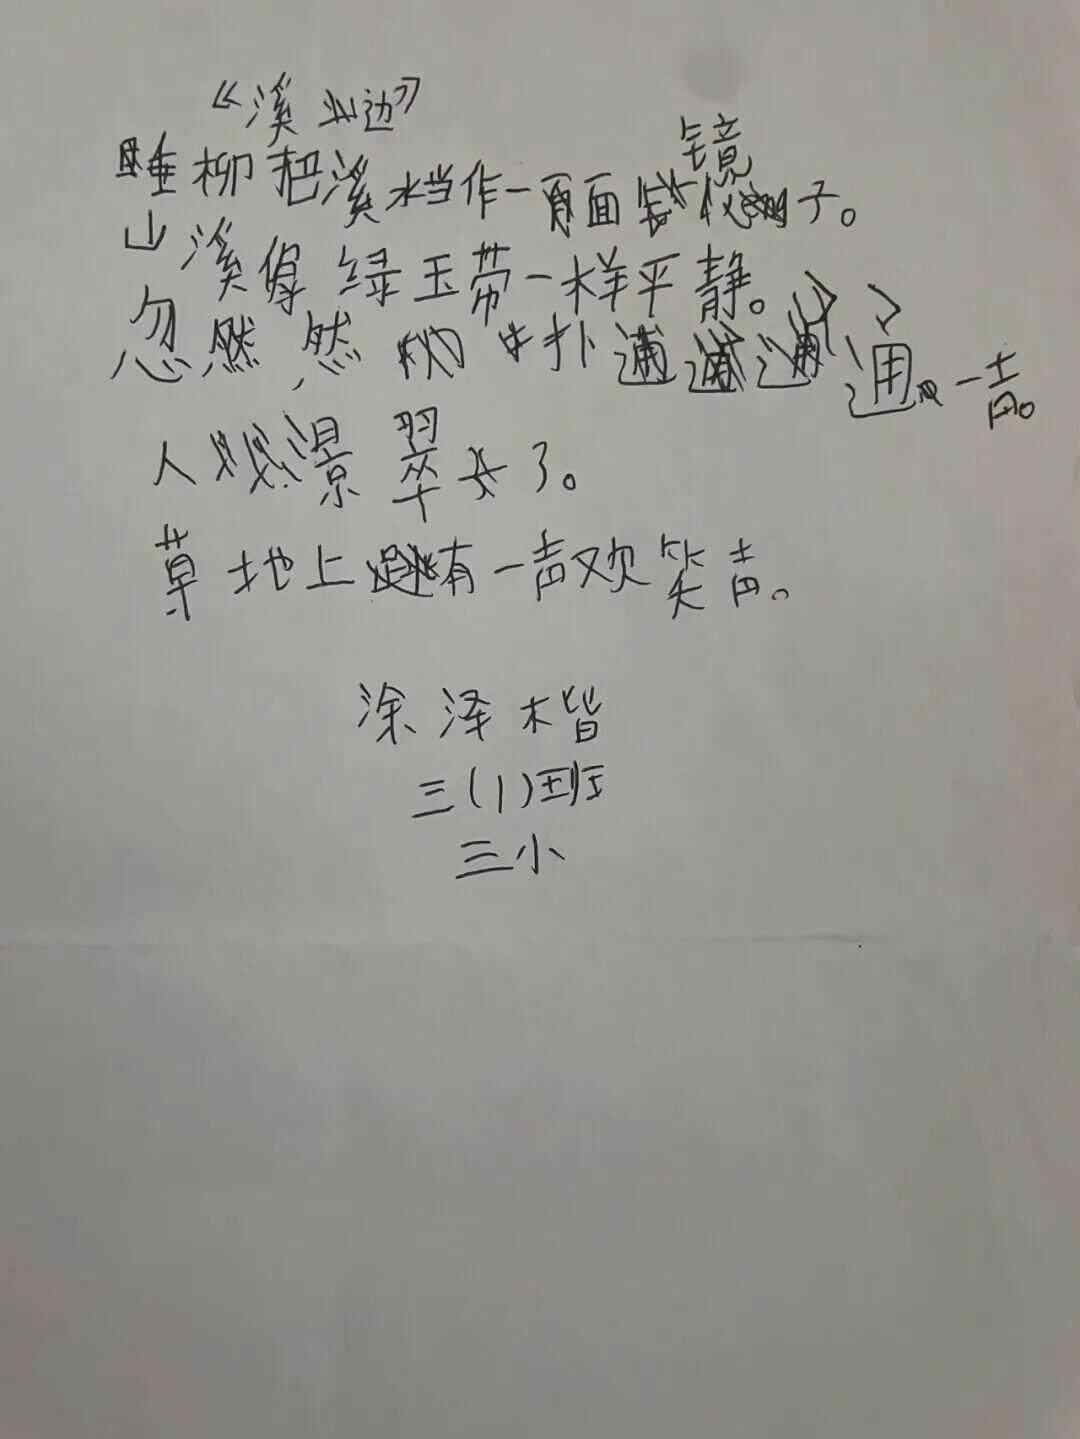 《溪边》
睡柳把溪档作一面镜子。
山溪像绿玉带一样平静。
忽然,然 中扑通一声。
人景翠 了。
草地上有一声欢笑声。
涂泽楷
三(1)班
三小